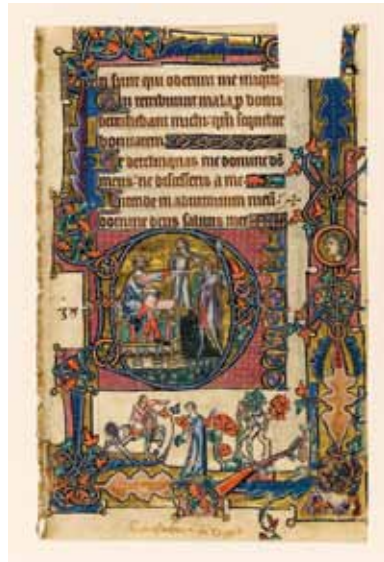 sunt qui oderunt me inique
Qui retribuunt mala p bonis
detrahebant michi: qm̄ sequebar
bonitatem.
Ne derelinquas me domine ds̄
meus: ne discesseris a me.
Intende in adiutorium meū
domine deus salutis mee.
D